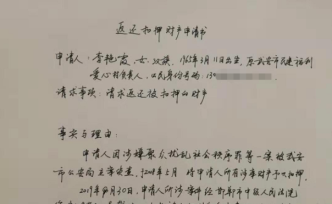 返还扣押财产申请书
申请人：李艳霞，女，汉族，196 年3月11日出生，原武安市民建福利
爱心村负责人，公民身份号码：130
请求事项：请求返还被扣押的财产
事实与理由：
申请人因涉嫌聚众扰乱社会秩序罪等一案被武安
市公安局立案侦查，2018年5月 将申请人所有涉案财产予以扣押。
2019年 月30日，申请人所涉案件经邯郸市中级人民法院